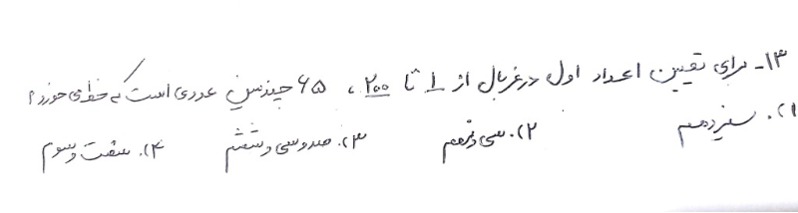 ۱۳- برای تعیین اعداد اول در غربال از ۱ تا ۲۰۰، ۶۵ چندمین عددی است که خط می خورد؟
۱). سیزدهم ۲). سی و نهم ۳). صد و سی و ششم ۴). شصت و سوم